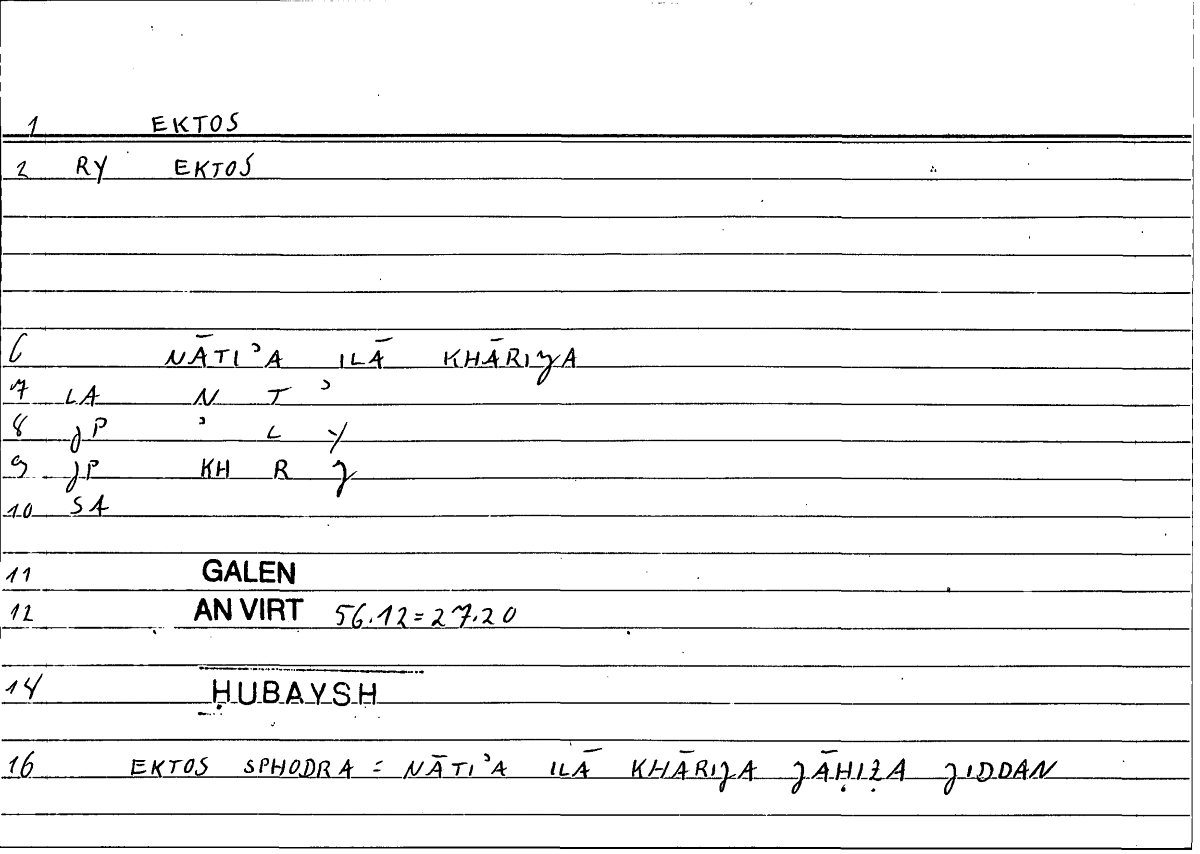 1 EKTOS
2 RY EKTOS
6 NĀTIʾA ILĀ KHĀRIJA
7 LA N T ʾ
8 JP ʾ L Y
9 JP KH R J
10 SA
11 GALEN
12 AN VIRT 56.12=27.20
14 ḤUBAYSH
16 EKTOS SPHODRA = NĀTIʾA ILĀ KHĀRIJA JĀḤIẒA JIDDAN